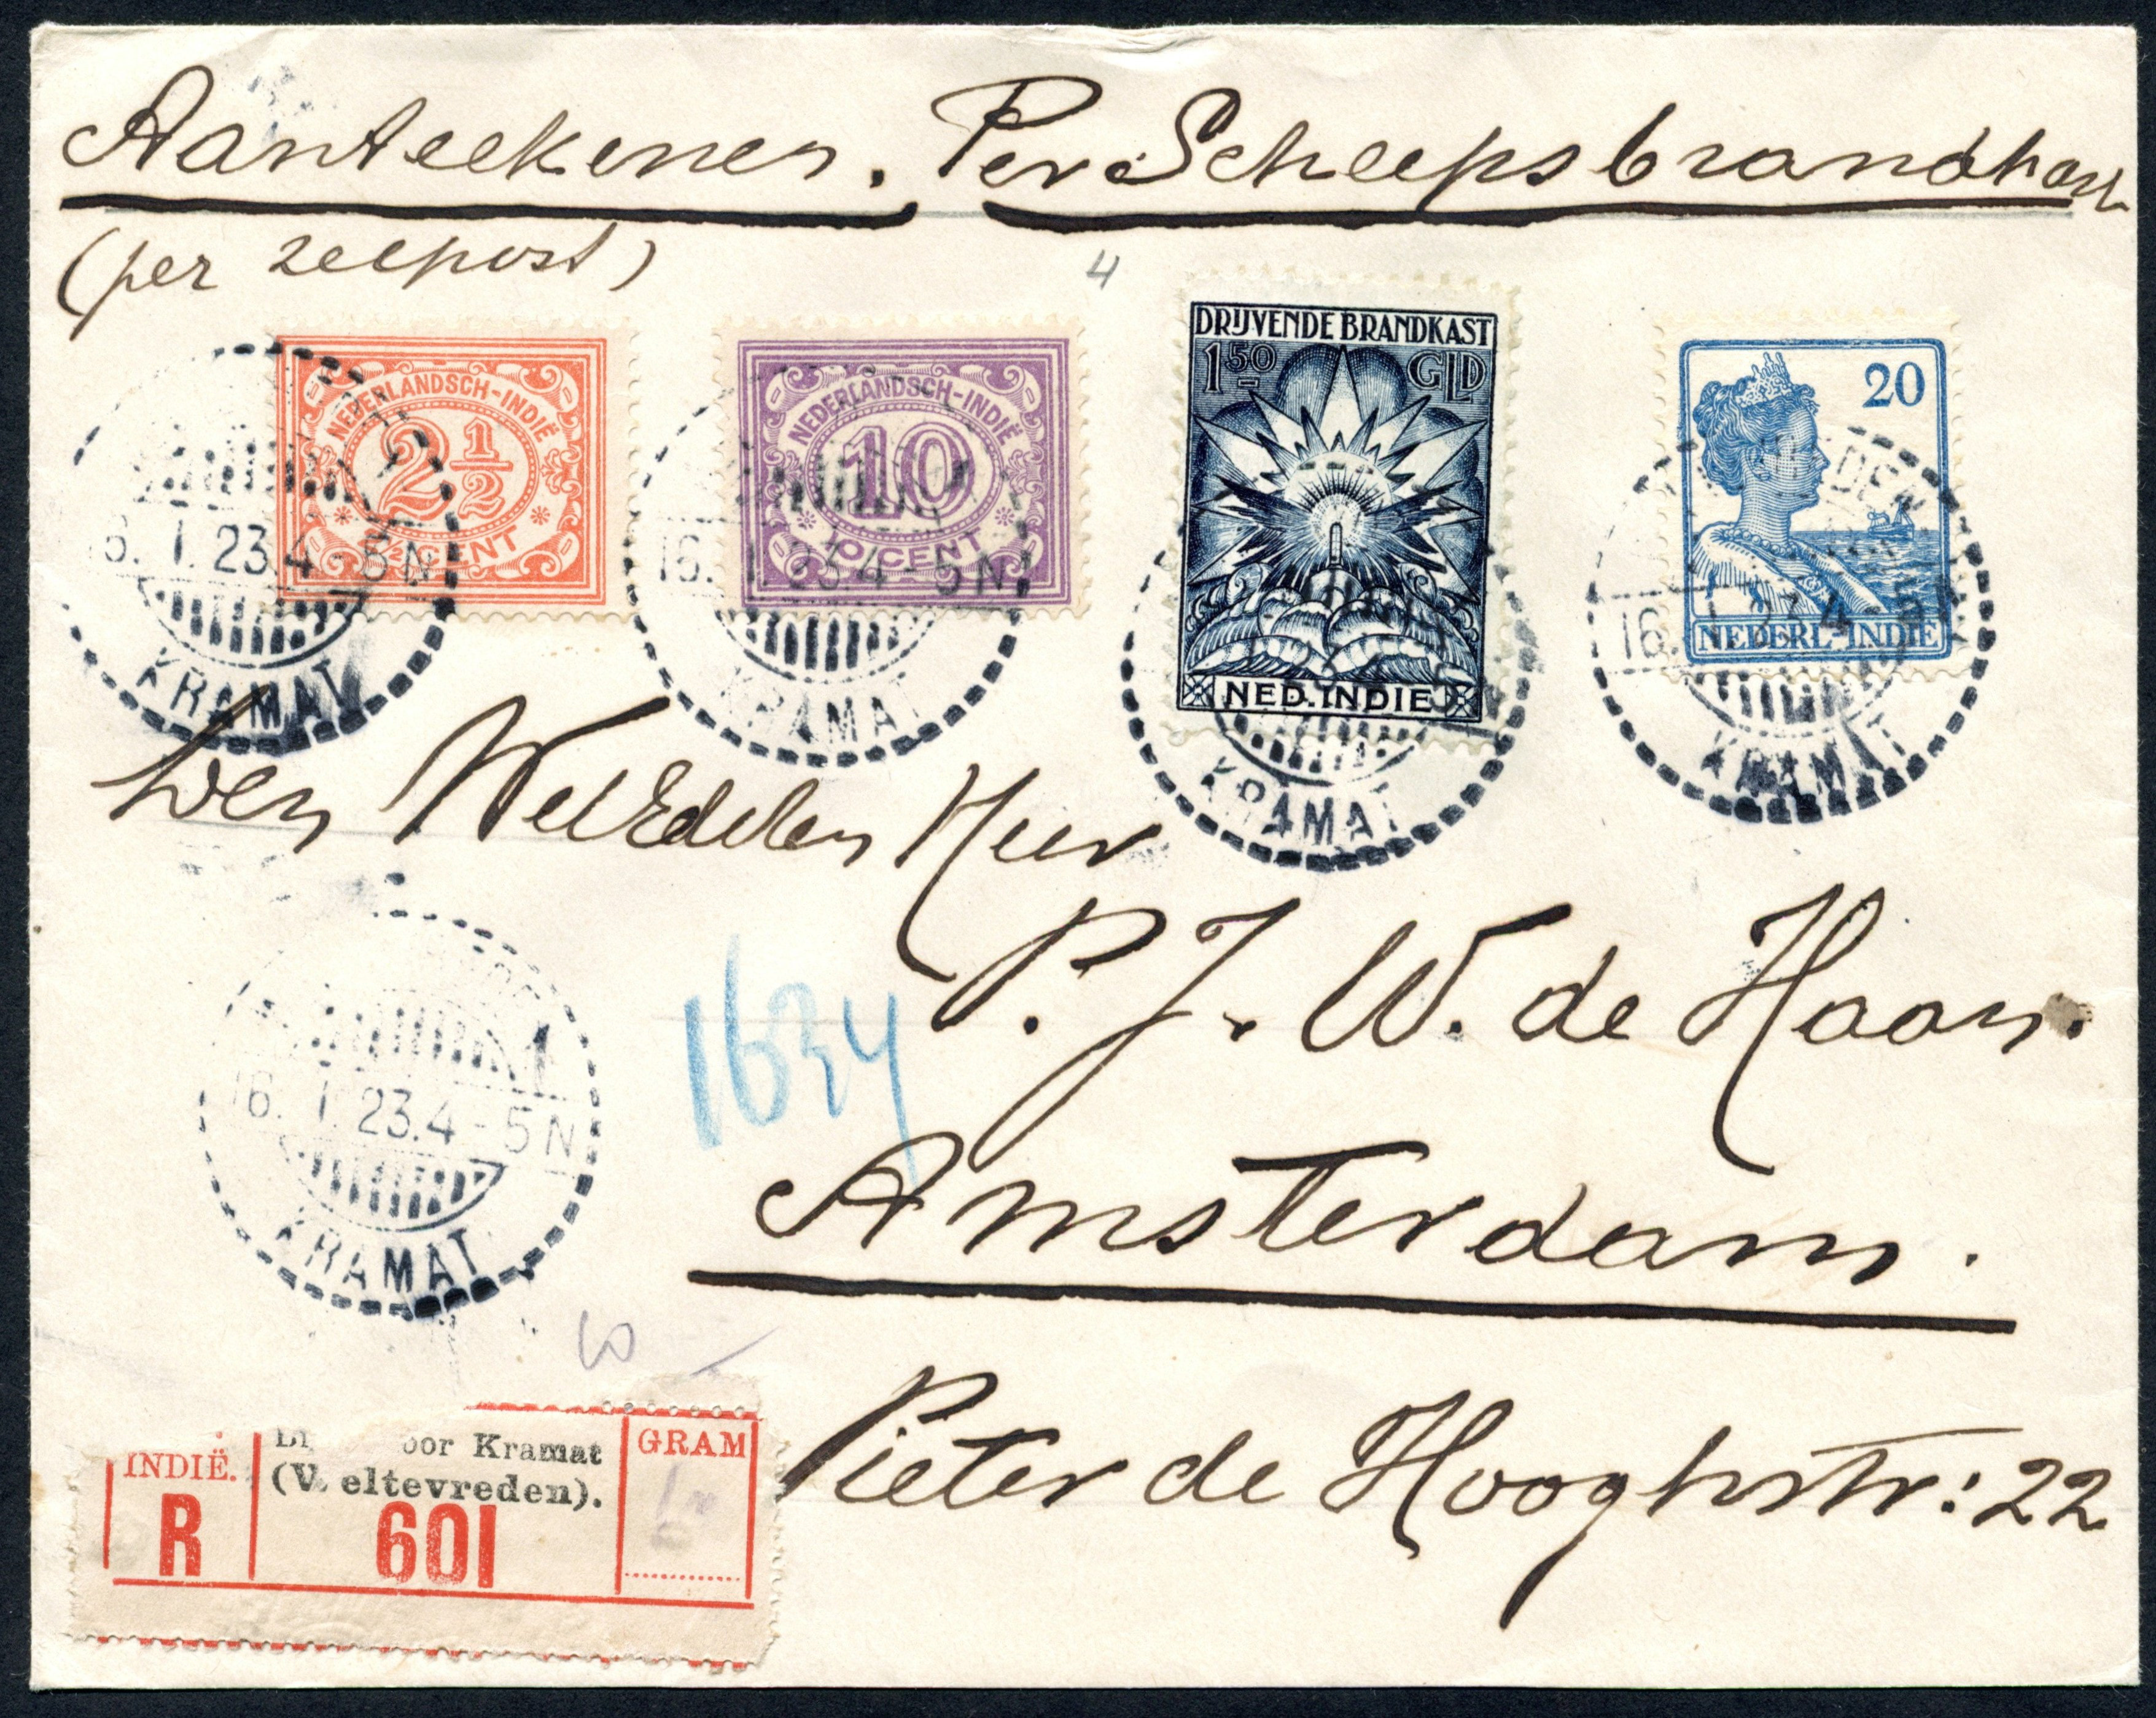 Aanteekenen. Per Scheepsbrandkast
(per zeepost)
4
NEDERLANDSCH-INDIË
2½
2½ CENT
NEDERLANDSCH-INDIË
10
10 CENT
DRIJVENDE BRANDKAST
1 50 GLD
NED. INDIE
20
NEDERL-INDIË
16. 1. 23.4-5N
KRAMAT
16. 1. 23.4-5N
KRAMAT
KRAMAT
16. 1. 23.4-5N
KRAMAT
Den WelEdelen Heer
P. J. W. de Haan.
1634
Amsterdam.
Pieter de Hooghstr: 22
16. 1. 23.4-5N
KRAMAT
INDIË.
R
Kramat
(Weltevreden).
601
GRAM